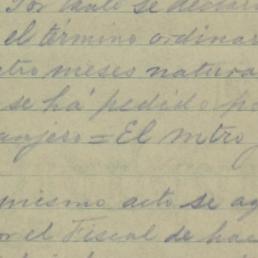 Por tanto se declara
el término ordinar
tro meses natura
se há pedido po
anjero = El mtro
mismo acto se ag
or el Fiscal de hac